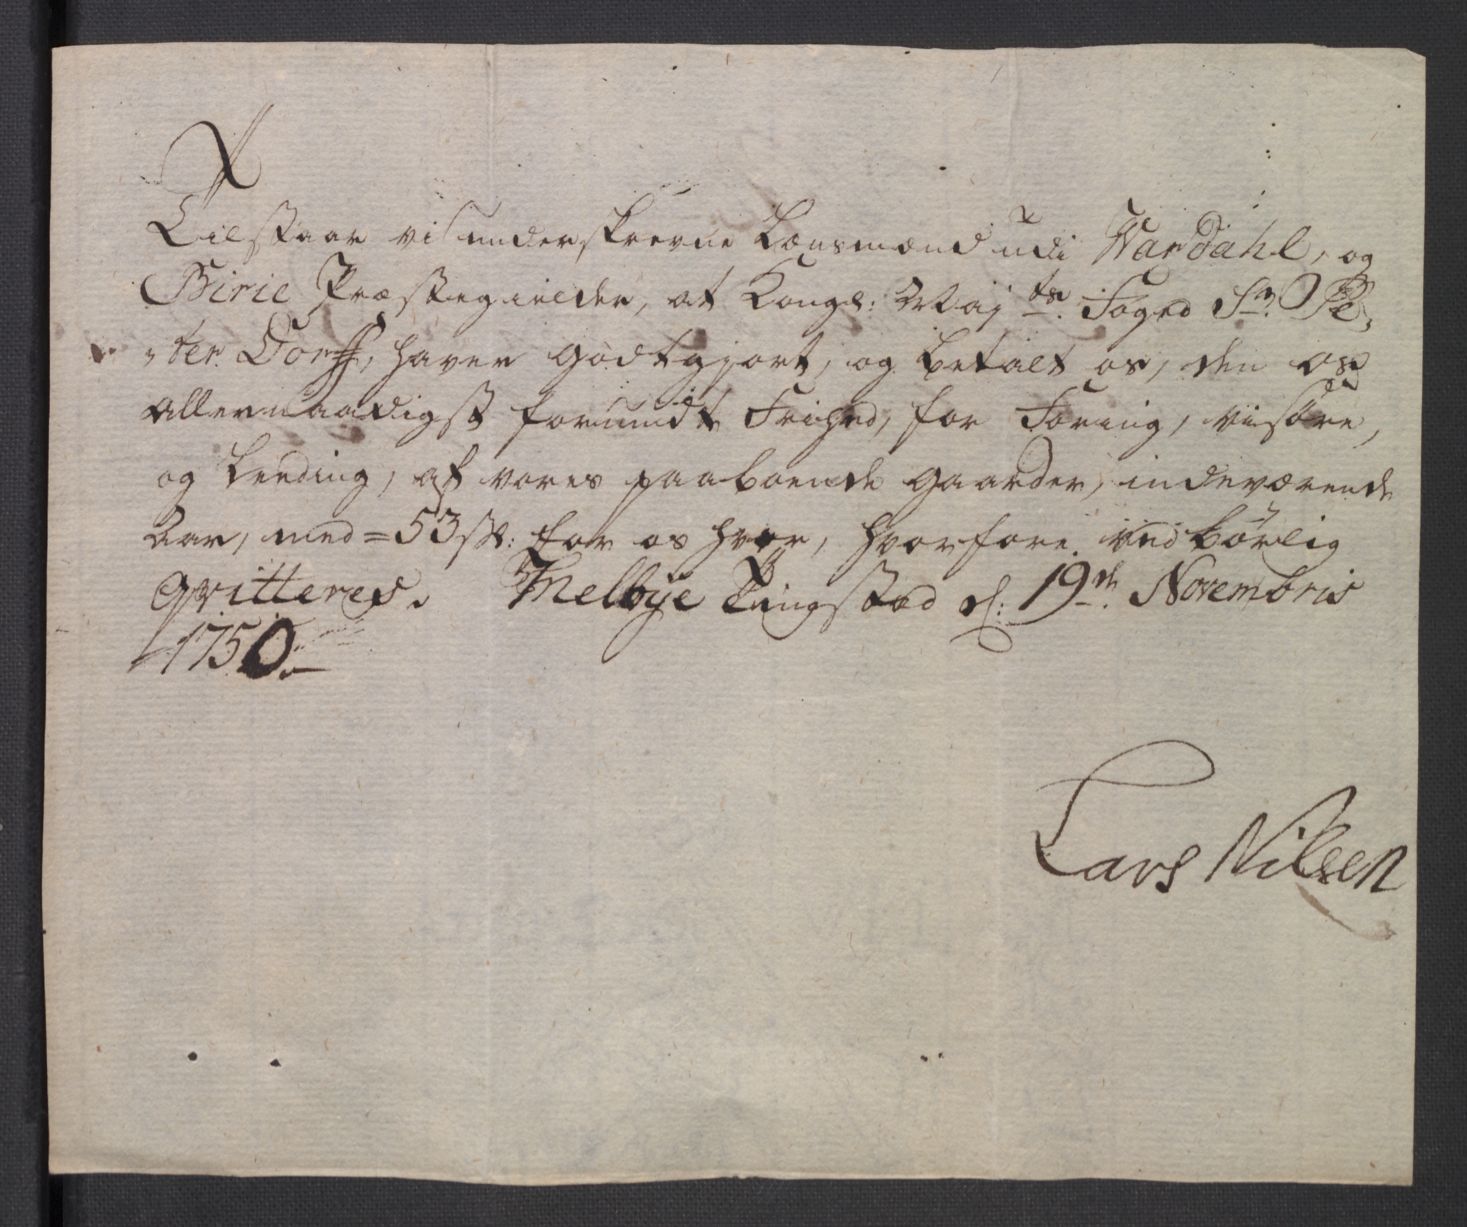 Tilstaar vi underskrevne Lensmænd udi Wardahl, og
Birie Præstegielder, at Kongl: Maj:ts Foged Sr. Pe,
,ter Dorff, haver Godtgjort, og betalt os, den os
allernaadigst forundte Frihed, for Foring,
og Leeding, af vores paaboende Gaarder, indeværende
Aar, med = 53 sk: for os hver, hvorfore ved børlig
qvitteres. Melbye Tingsted d: 19de Novembris
1750.
Lars Nilsen